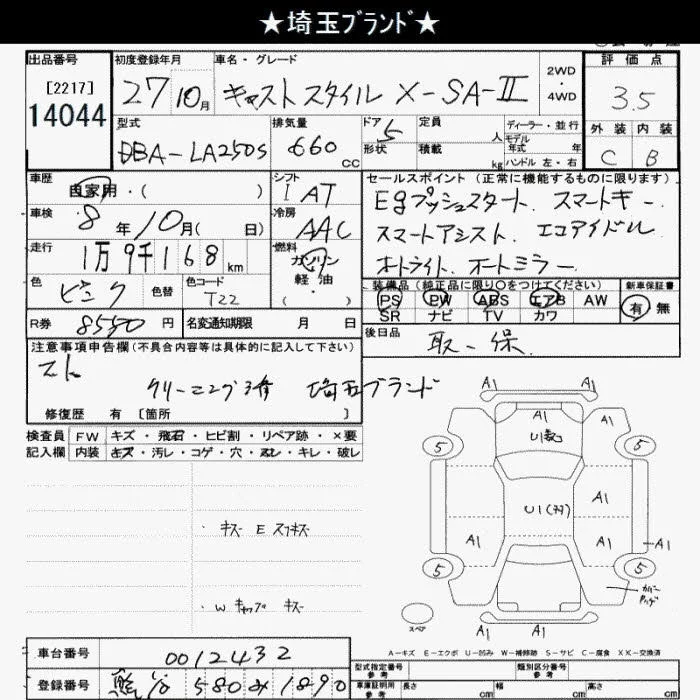 ★埼玉ブランド★
出品番号 初度登録年月 車名・グレード 評価点
[2217]
14044
27 10月 キャストスタイル X-SA-Ⅱ 2WD・4WD 3.5
型式 排気量 ドア 5 定員 人 ディーラー・並行 外装 内装
DBA-LA250S 660 CC 形状 積載 kg モデル年式 年 ハンドル 左・右 C B
車歴 シフト セールスポイント (正常に機能するものに限ります)
自家用・( ) I AT Egプッシュスタート. スマートキー.
車検 8年10月( 日) 冷房 AAC スマートアシスト. エコアイドル
走行 1万9千168km 燃料 ガソリン 軽油 ( ) オートライト. オートミラー.
色 ピンク 色替 色コード T22 装備品 (純正品に限り○をつけてください) 新車保証書
PS PW ABS エアB AW 有 無
SR ナビ TV カワ
R券 8590円 名変通知期限 月 日 後日品
取. 保.
注意事項申告欄 (不具合内容等は具体的に記入して下さい)
クリーニング済 埼玉ブランド
修復歴 有 [箇所 ]
検査員 FW キズ・飛石・ヒビ割・リペア跡・×要
記入欄 内装 キズ・汚レ・コゲ・穴・スレ・キレ・破レ
A1 A1
A1 A1
5 5
A1
U1
A1 A1 A1
5 5
・キズ E スリキズ
・W キャップ キズ
スペア
A1 A1
A-キズ E-エクボ U-凹み W-補修跡 S-サビ C-腐食 XX-交換済
車台番号 0012432 型式指定番号 参考 類別区分番号 参考
登録番号 580 み 1890 車庫証明用 参考 長さ cm 幅 cm 高さ cm